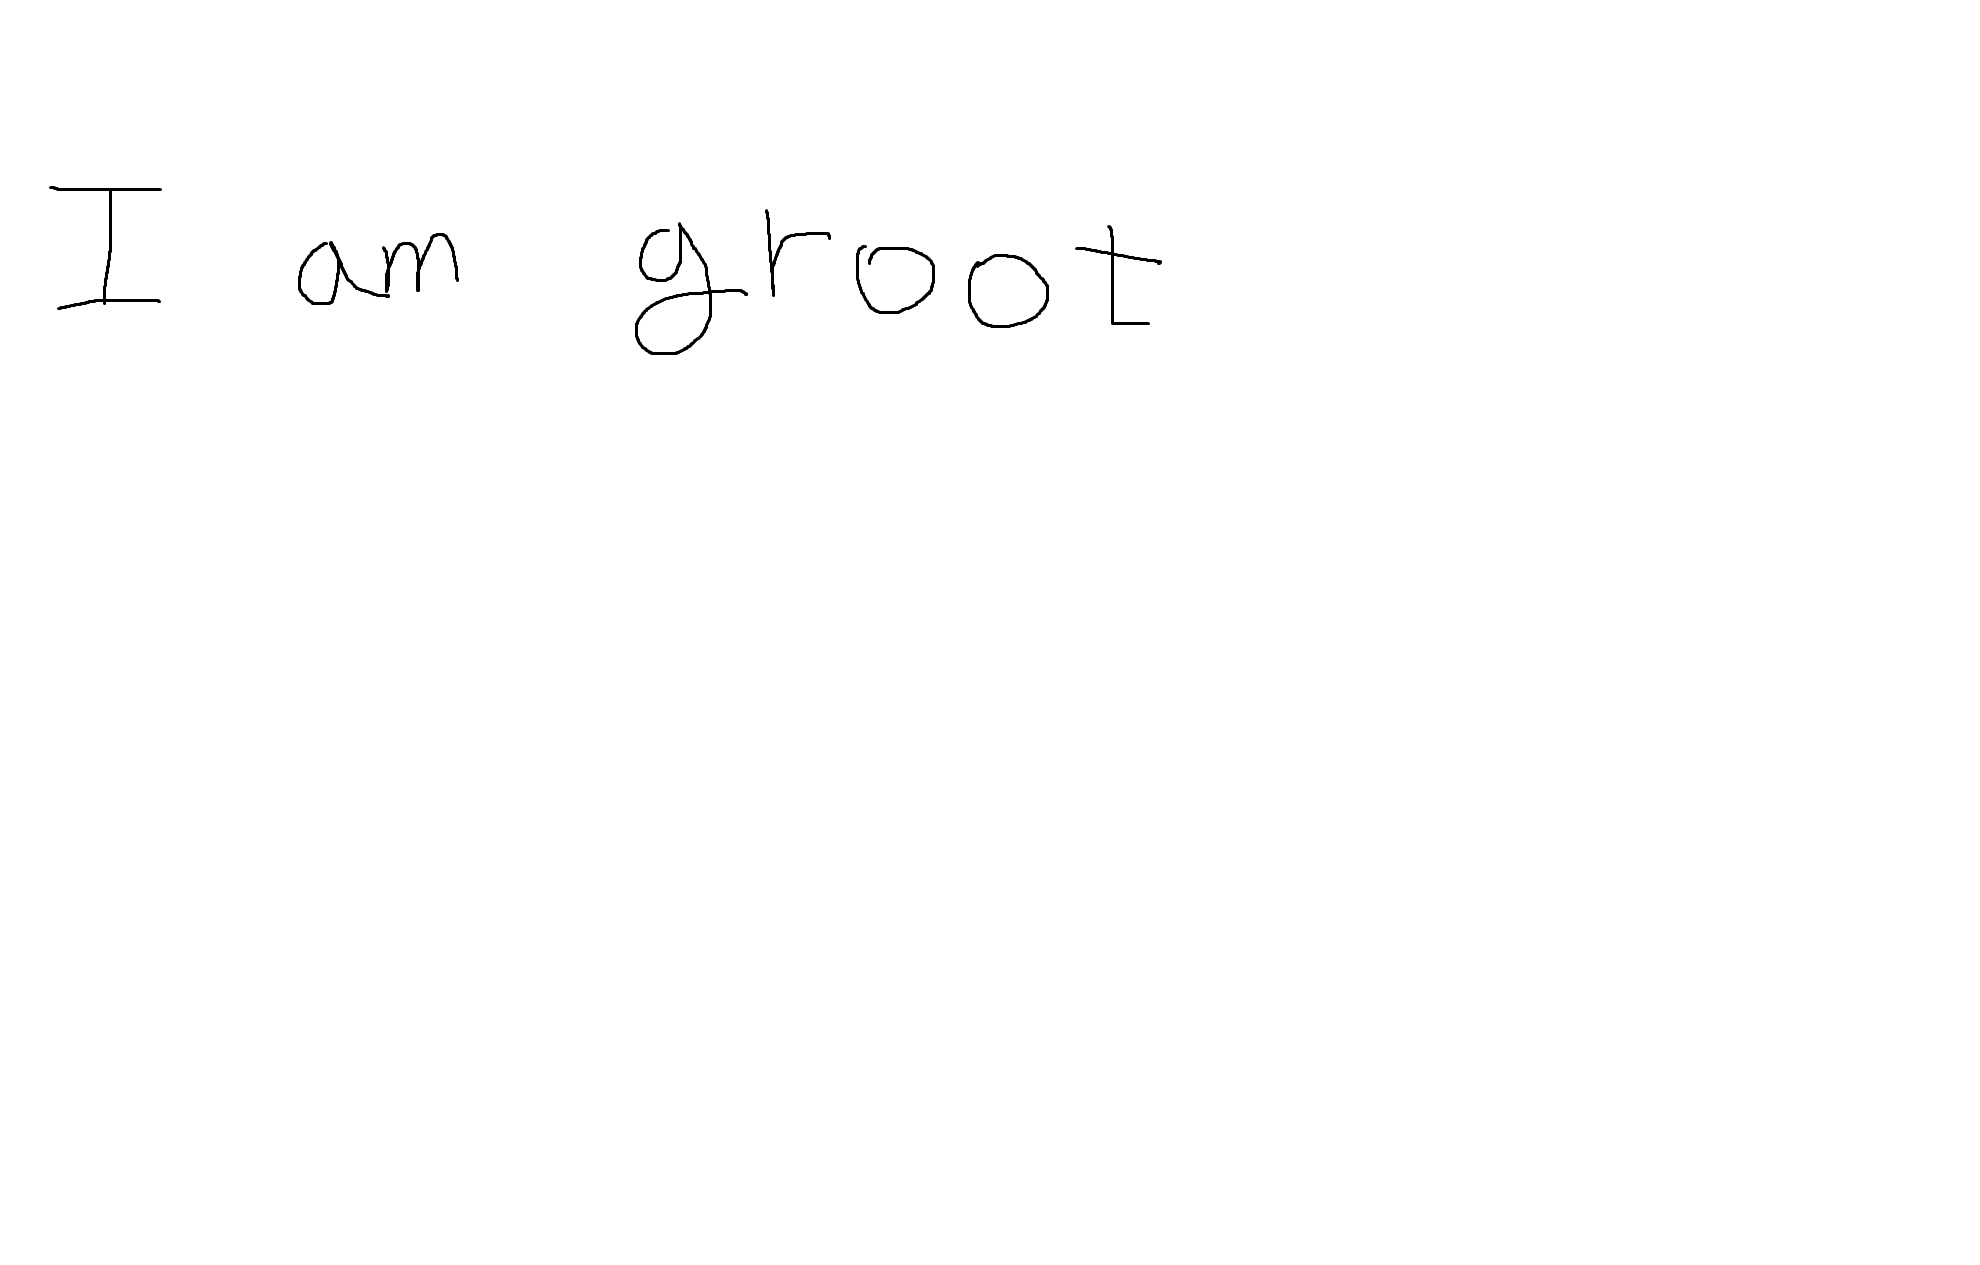 I am groot